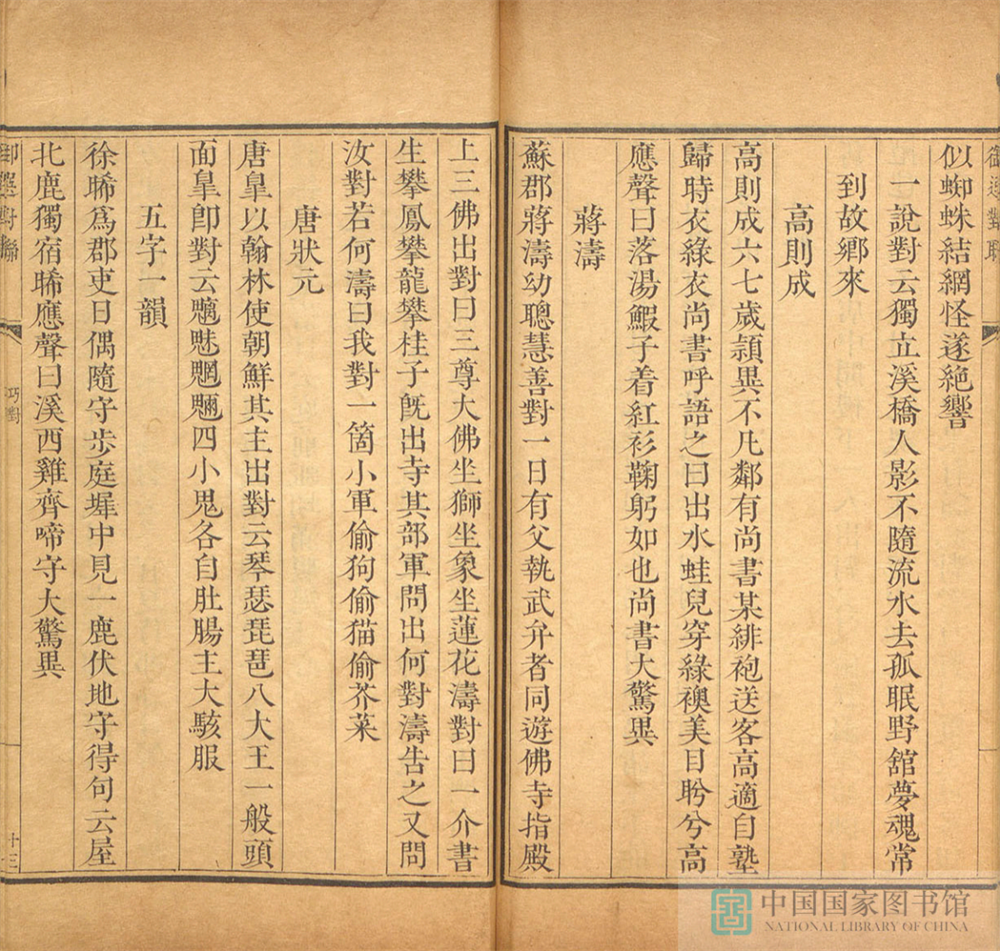 似蜘蛛結網怪遂絕響
一說對云獨立溪橋人影不隨流水去孤眠野舘夢魂常
到故鄉來
高則成
高則成六七歲頴異不凡鄰有尚書某緋袍送客高適自塾
歸時衣綠衣尚書呼語之曰出水蛙兒穿綠襖美目盻兮高
應聲曰落湯鰕子着紅衫鞠躬如也尚書大驚異
蔣濤
蘇郡蔣濤幼聰慧善對一日有父執武弁者同遊佛寺指殿
上三佛出對曰三尊大佛坐獅坐象坐蓮花濤對曰一介書
生攀鳳攀龍攀桂子旣出寺其部軍問出何對濤告之又問
汝對若何濤曰我對一箇小軍偷狗偷猫偷芥菜
唐狀元
唐皐以翰林使朝鮮其主出對云琴瑟琵琶八大王一般頭
面皐卽對云魑魅魍魎四小鬼各自肚腸主大駭服
五字一韻
徐晞爲郡吏日偶隨守步庭墀中見一鹿伏地守得句云屋
北鹿獨宿晞應聲曰溪西雞齊啼守大驚異
巧對
十三
中国国家图书馆
NATIONAL LIBRARY OF CHINA